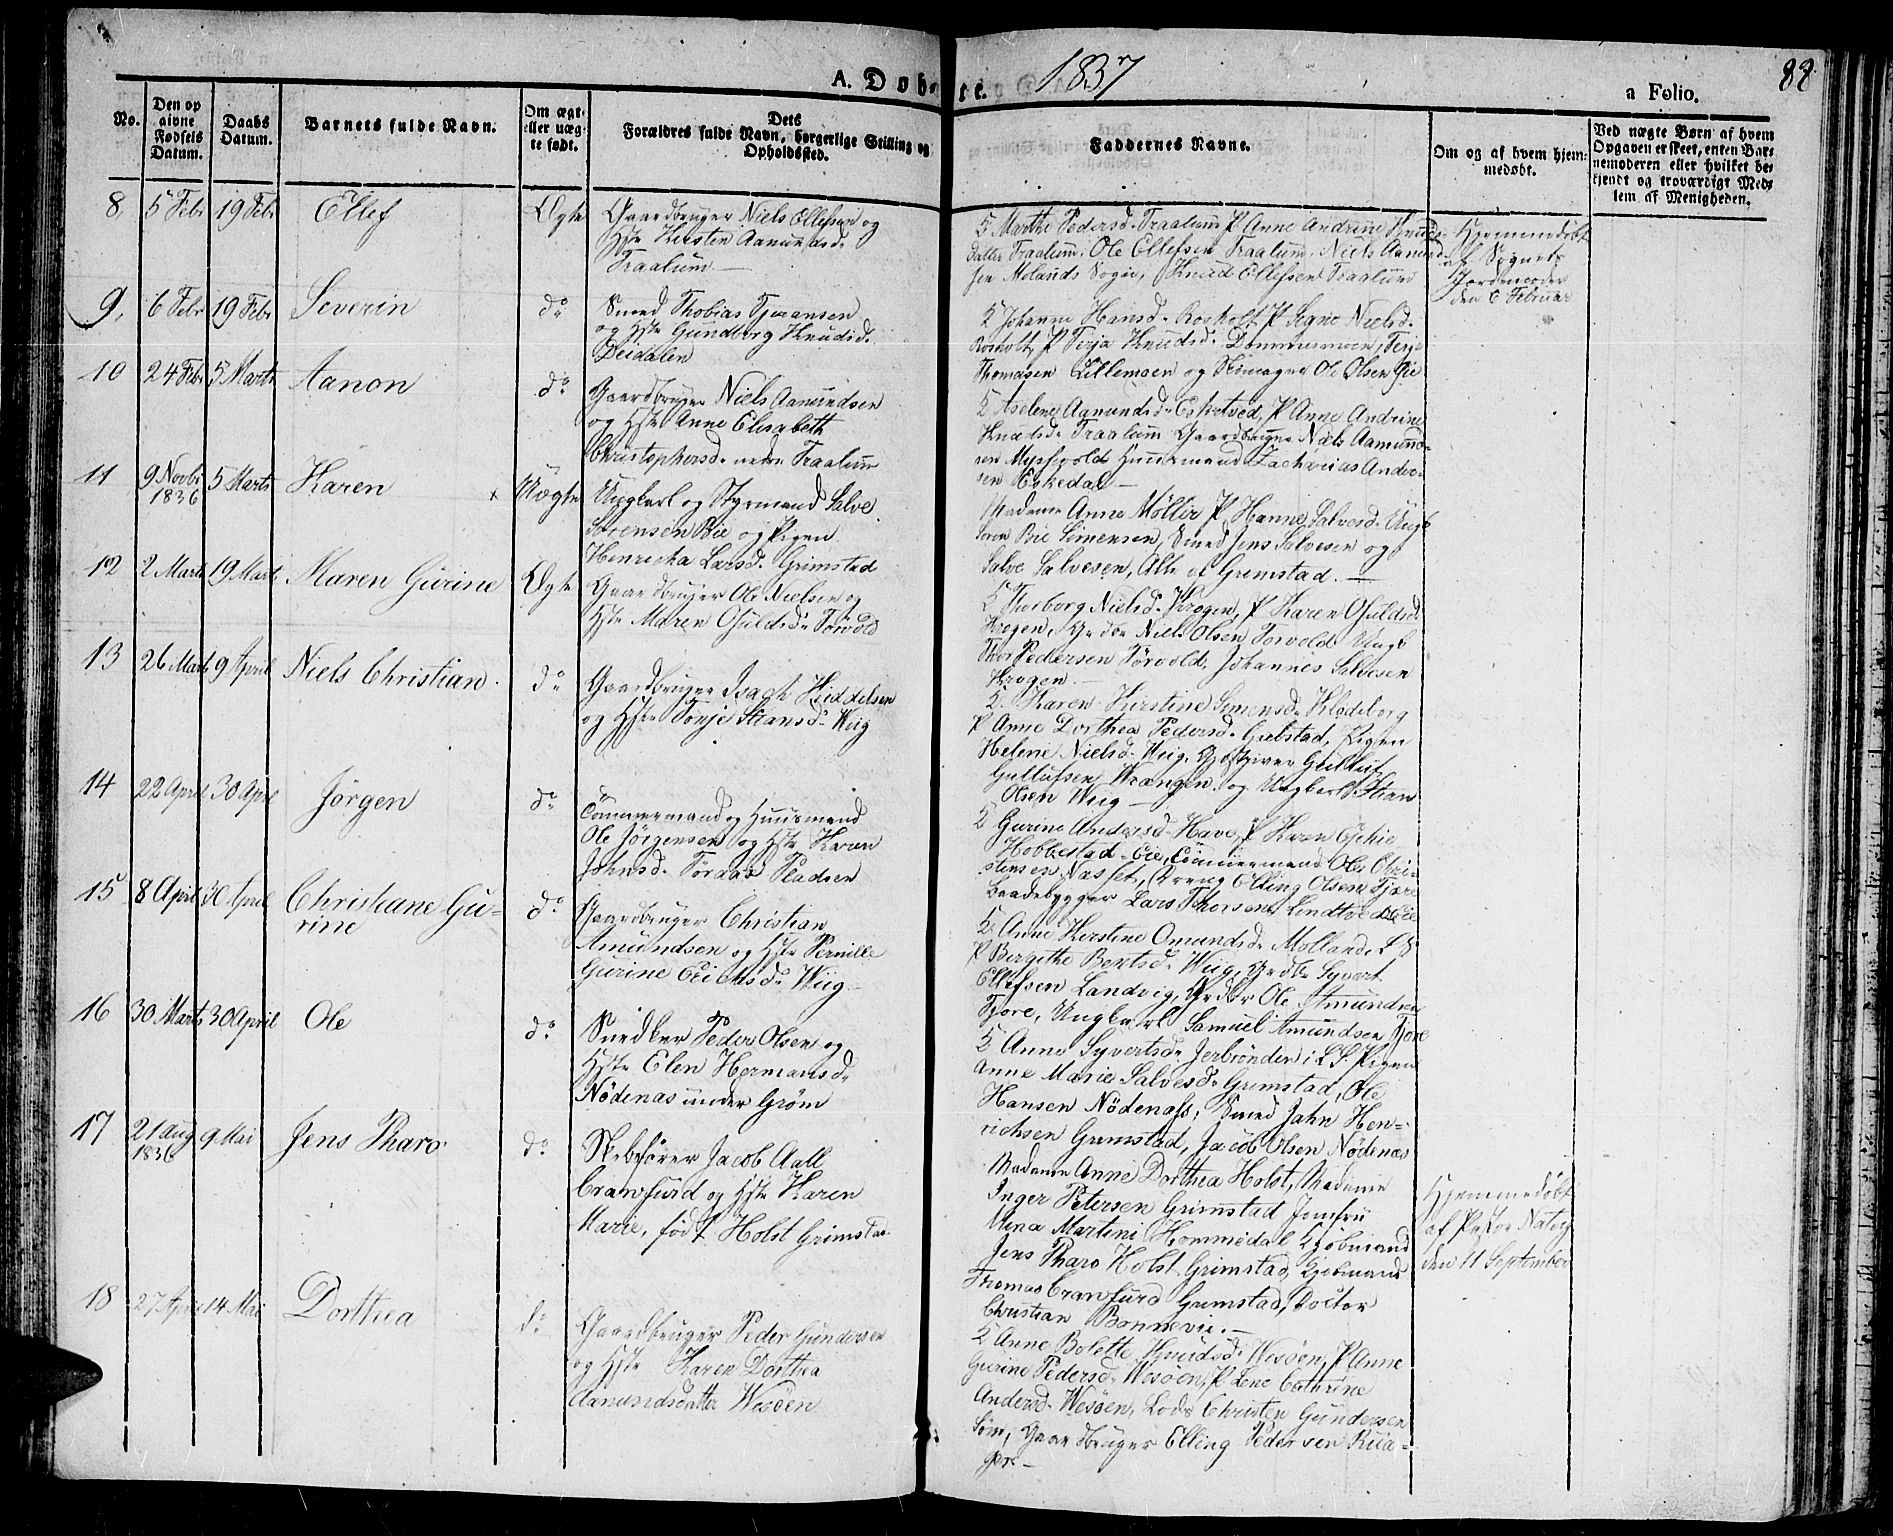 A. Døbte. 1837 a Folio. 88
No.
Den op
givne
Fødsels
Datum.
Daabs
Datum.
Barnets fulde Navn.
Om ægte
eller uæg-
te født.
Dets
Forældres fulde Navn, borgerlige Stilling og
Opholdssted.
Faddernes Navne.
Om og af hvem hjem-
medøbt.
Ved uægte Børn af hvem
Opgaven er skeet, enten Bar-
nemoderen eller hvilket be-
kjendt og troværdigt Med-
lem af Menigheden.
8 5 Febr 19 Febr Ellef Ægte
Gaardbruger Niels Ellefsen og
Hstr Kirsten Aamundsd.
Traalum
K Marthe Pedersd. Traalum P Anne Andrine Knuds-
datter Traalum, Ole Ellefsen Traalum, Niels Aamund-
sen Molands Sogn, Knud Ellefsen Traalum
Hjemmedøbt
af Sognets
Jordemoder
den 6 Februar
9. 6 Febr 19 Febr Severin do
Smed Thobias
og Hstr Gundborg Knudsd.
Deidalen
K Johanne Hansd. Rosholt P Signe Nielsd.
Rosholt, P Terja Knudsd. Dømmesmoen, Terje
Thomasen Lillemoen og Skomager Ole Olsen Bie
10 24 Febr 5 Marts Aanon do
Gaardbruger Niels Aamundsen
og Hstr Anne Elisabeth
Christophersd. nedre Traalum
K Aselene Aamundsd. Esketved, P Anne Andrine
Knudsd. Traalum Gaardbruger Niels Aamund-
sen Huusmand Zacharias Ander-
sen Eskedal
11 9 Novbr 1836 5 Marts Karen x Uægte
Ungkarl og Styrmand Salve
Sørensen Bie og Pigen
Henricka Larsd. Grimstad
Madame Anne Møller P Hanne Salvesd. Ungk
Søren Bie Simensen, Smed Jens Salvesen og
Salve Salvesen, Alle af Grimstad.
12 2 Marts 19 Marts Maren Gurine Ægte
Gaardbruger Ole Nielsen og
Hstr Maren Osuldsd. Torvold
K Thorborg Nielsd. Krogen, P Karen Osuldsd.
Krogen, Grdbr Niels Olsen Torvold Ungk
Thor Pedersen Torvold, Johannes Salvesen
Krogen
13 26 Marts 9 April Niels Christian do
Gaardbruger Isach Kiddelsen
og Hstr Tonje Stiansd. Wiig
K. Karen Kirstine Simensd. Klødeborg
P Anne Dorthea Pedersd. Gubstad, Pigen
Helene Nielsd. Wiig, Gjestgiver Gullut
Gullufsen Wrængen og Ungkarl Stian
Olsen Wiig
14 22 April 30 April Jørgen do
Tømmermand og Huusmand
Ole Jørgensen og Hstr Karen
Johnsd. Toraas Pladsen
K Gurine Andersd. Have, P Karen
Hobbestad Eie, Tømmermand Ole Chri-
stensen Næsset, Dreng Elling Olsen Fjære
Baadebygger Lars Thorsen Lindtveds Eie
15 8 April 30 April Christiane Gu-
rine do
Gaardbruger Christian
Amundsen og Hstr Pernille
Gurine Erichsd. Wiig
K Anne Kirstine Omundsd. Molland, L S
P Birgithe Bertsd. Wiig, Grdbr Syvert
Ellefsen Landvig, Grdbr Ole Amundsen
Fjøre, Ungkarl Samuel Amundsen Fjøre
16 30 Marts 30 April Ole do
Snedker Peder Olsen og
Hstr Elen Hermansd.
Nödenas under Grøm
K Anne Syvertsd. Jerbrönden i L S. Pigen
Anne Marie Salvesd. Grimstad, Ole
Hansen Nödenass, Smed Jahn Hen-
richsen Grimstad, Jacob Olsen Nödenas
17 21 Aug 1836 9 Mai Jens Tharo do
Skibsfører Jacob Aall
Crawfurd og Hstr Karen
Marie, født Holst Grimstad
Madame Anne Dorthea Holst, Madame
Inger Petersen Grimstad Jomfru
Mina Martini Hommedal Kjøbmand
Jens Tharo Holst Grimstad, Kjøbmand
Thomas Crawfurd Grimstad, Doctor
Christian Bonnevie.
Hjemmedøbt
af Pastor Natvig
den 11 September
18 27 April 14 Mai Dorthea do
Gaardbruger Peder Gundersen
og Hstr Karen Dorthea
Aanundsdatter Wesöen
K Anne Bolette Knudsd. Wesöen, P Anne
Gurine Pedersd. Wesöen, P Lene Cathrine
Andersd. Wesöen, Lods Christen Gundersen
Söm, Gaardbruger Elling Pedersen Ruaa-
ger.